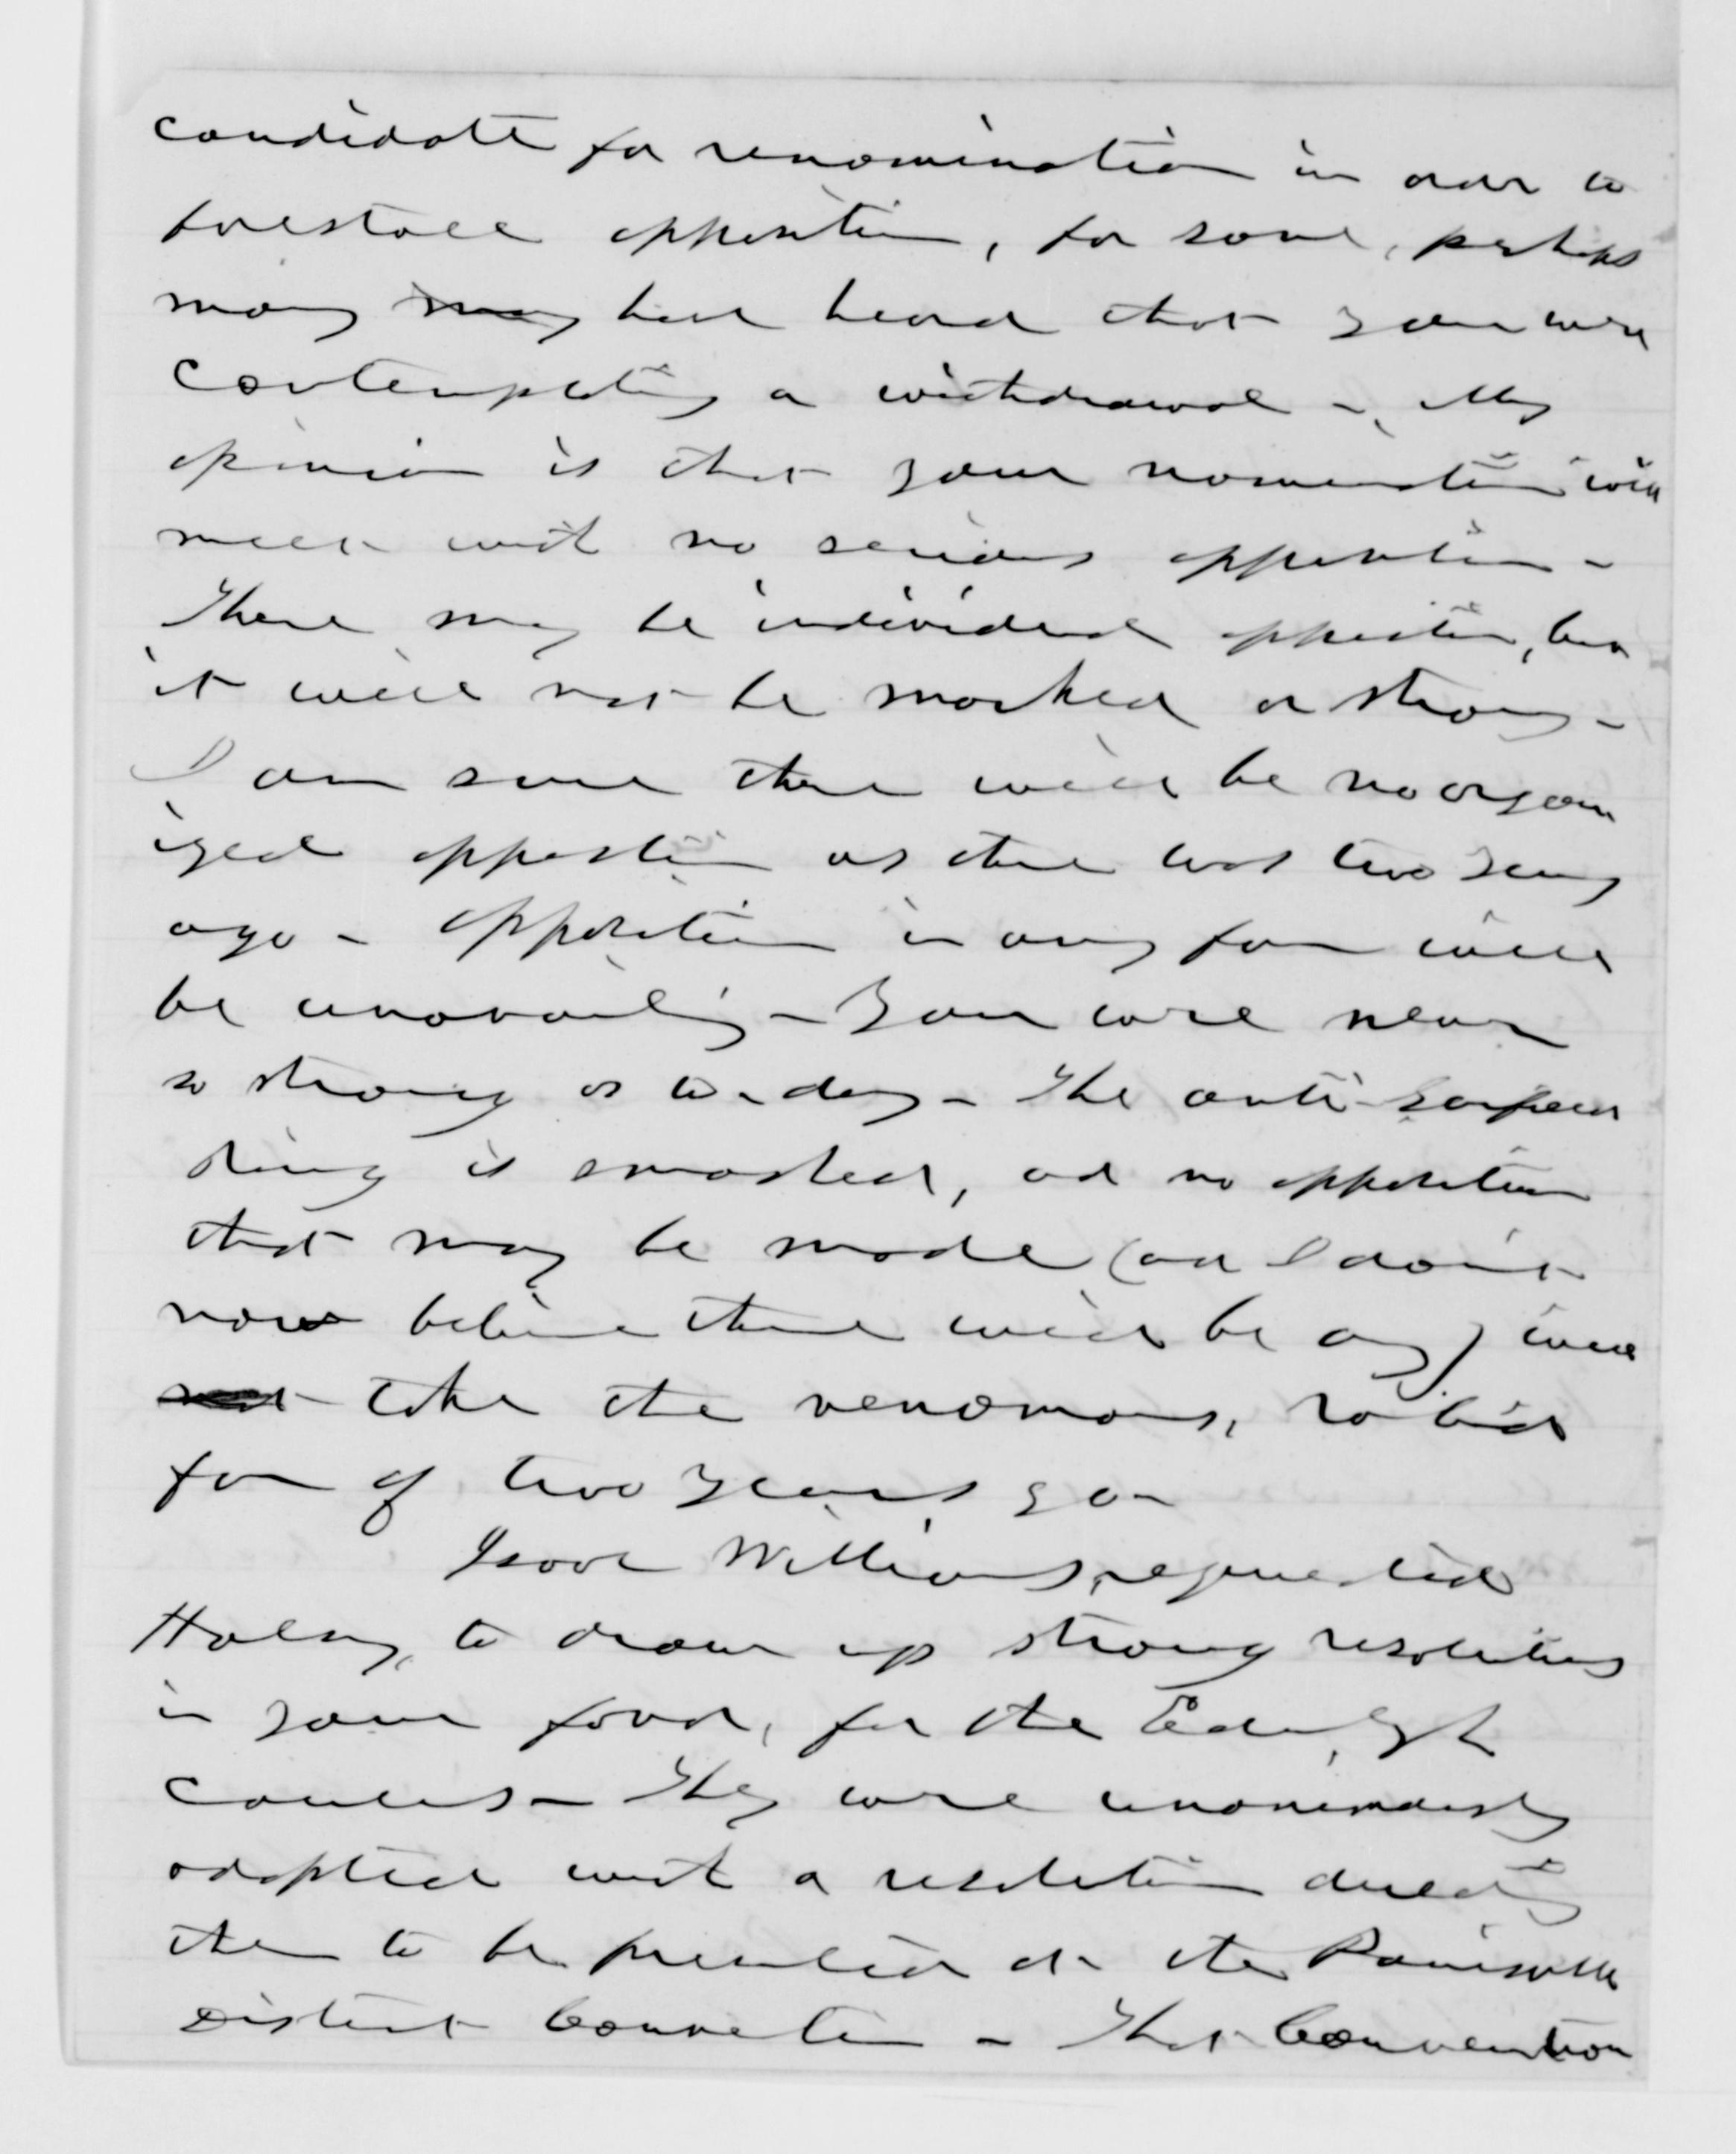 candidate for renomination in order to
forestall opposition, for some, perhaps
many may have heard that you were
contemplating a withdrawal - My
opinion is that your nomination will
meet with no serious opposition -
There may be individual opposition, but
it will not be marked or strong -
I am sure there will be no organ
ized opposition as there was two years
ago - Opposition in any form will
be unavailing - You were never
so strong as to-day - The anti-Garfield
ring is smashed, and no opposition
that may be made (and I don't
now believe there will be any) will
take the venomous, rabid
form of two years ago -
Isaac Williams, requested
Halsey, to draw up strong resolutions
in your favor, for the Edinburgh
caucus - They were unanimously
adopted with a resolution directing
them to be presented at the Painesville
District Convention - That Convention